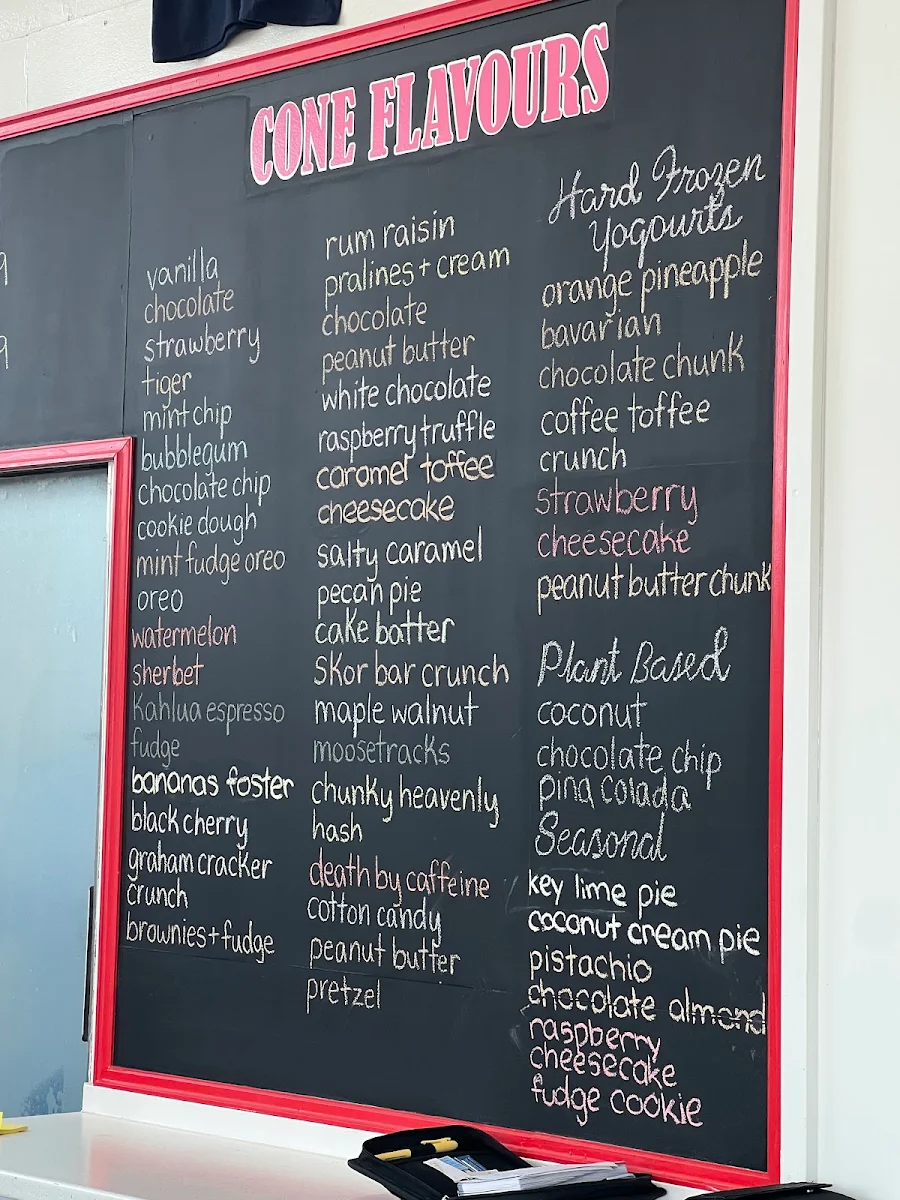 CONE FLAVOURS
9
9
vanilla
chocolate
strawberry
tiger
mint chip
bubblegum
chocolate chip
cookie dough
mint fudge oreo
oreo
watermelon
sherbet
kahlua espresso
fudge
bananas foster
black cherry
graham cracker
crunch
brownies+fudge
rum raisin
pralines + cream
chocolate
peanut butter
white chocolate
raspberry truffle
caramel toffee
cheesecake
salty caramel
pecan pie
cake batter
skor bar crunch
maple walnut
moosetracks
chunky heavenly
hash
death by caffeine
cotton candy
peanut butter
pretzel
Hard Frozen
Yogourts
orange pineapple
bavarian
chocolate chunk
coffee toffee
crunch
strawberry
cheesecake
peanut butter chunk
Plant Based
coconut
chocolate chip
pina colada
Seasonal
key lime pie
coconut cream pie
pistachio
chocolate almond
raspberry
cheesecake
fudge cookie